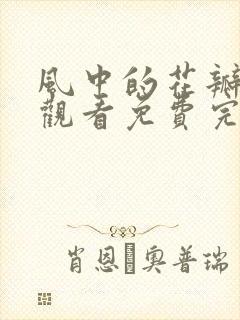 風中的花瓣
觀看免費完
肖恩·奧普瑞